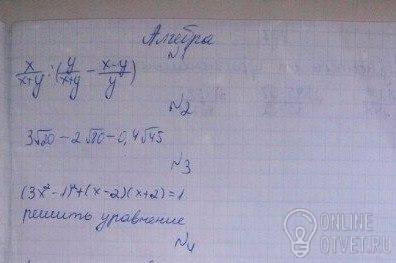 Алгебра
№1
x/(x+y) : (y/(x+y) − (x−y)/y)
№2
3√20 − 2√80 − 0,4√45
№3
(3x²−1)²+(x−2)(x+2)=1
решить уравнение
№4
ONLINE
OTVET.RU